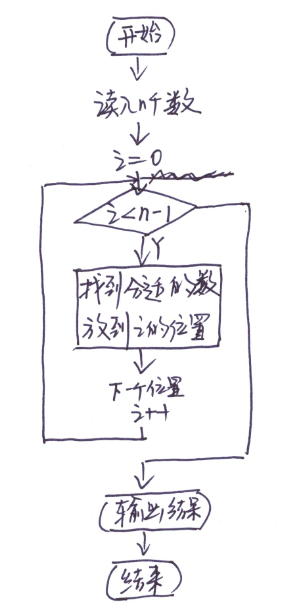 开始
读入n个数
i=0
i<n-1
Y
找到合适的数
放到i的位置
下一个位置
i++
输出结果
结束